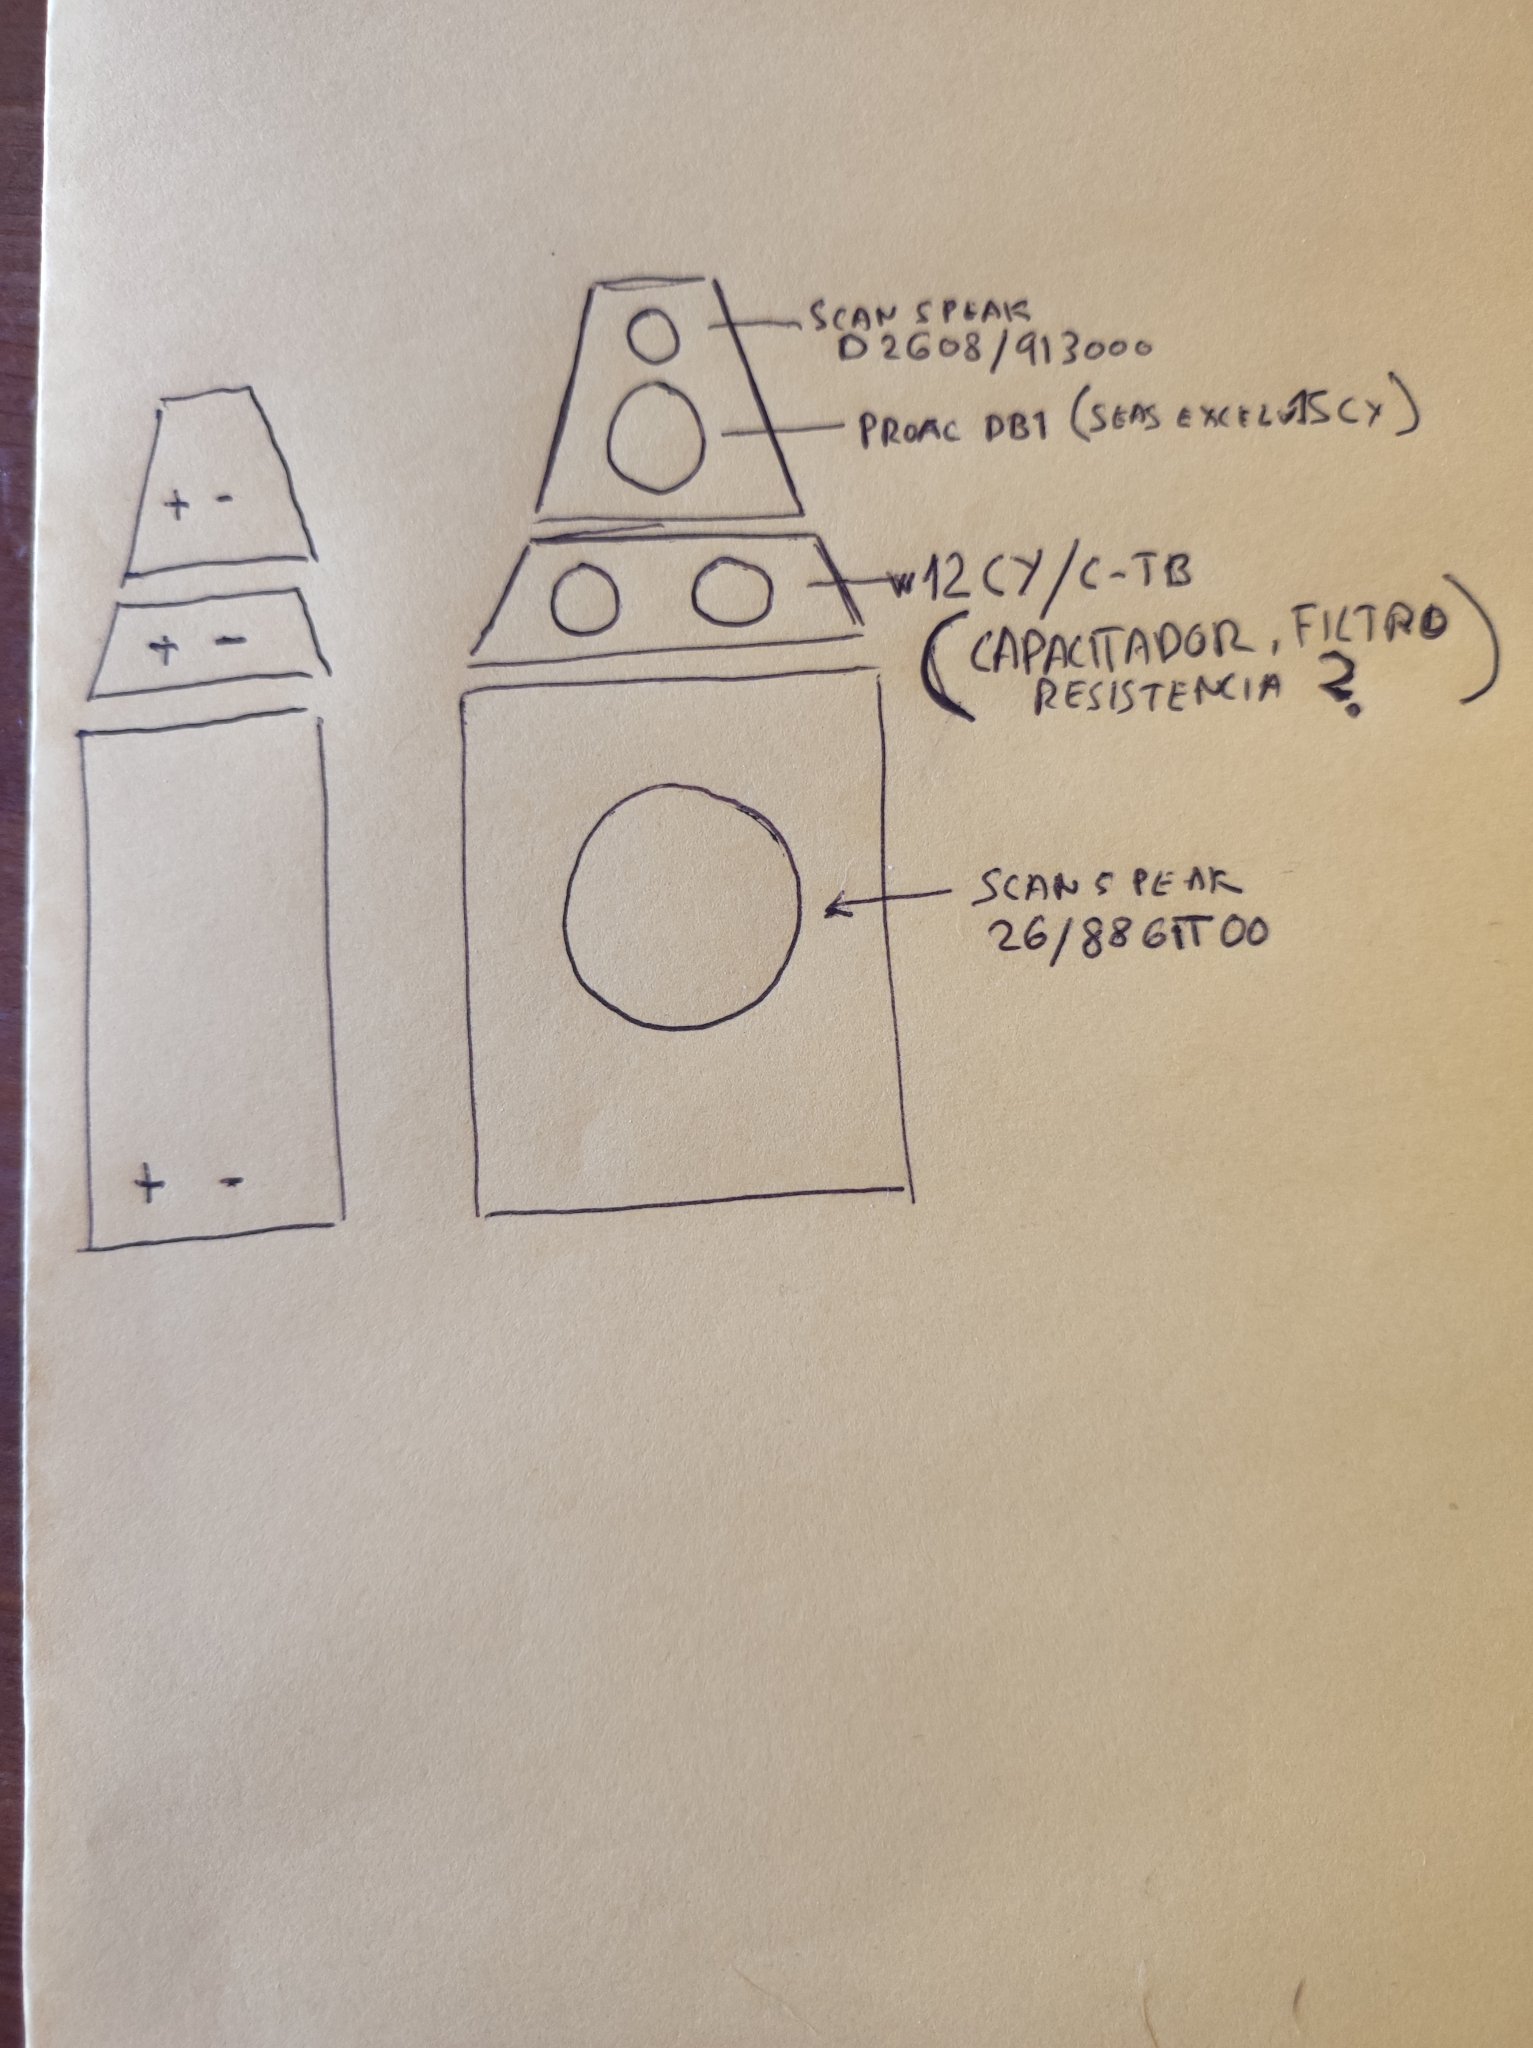 SCAN SPEAK
D2608/913000
PROAC DB1 (SEAS EXCEL W15CY)
+ -
W12CY/C-TB
+ -
(CAPACITADOR, FILTRO
RESISTENCIA ?)
SCAN SPEAK
26/8861T00
+ -